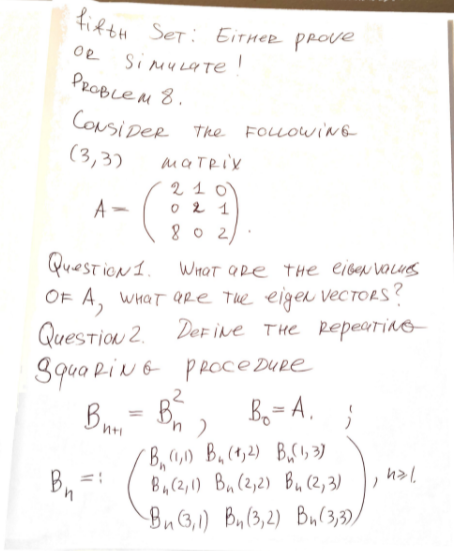 fifth Set: Either prove
or Simulate!
Problem 8.
Consider the following
(3,3) matrix
A = ( 2 1 0
0 2 1
8 0 2 ).
Question 1. What are the eigenvalues
of A, what are the eigenvectors?
Question 2. Define the Repeating
Squaring procedure
B_{n+1} = B_n^2, B_0 = A. ;
B_n =: ( B_n(1,1) B_n(1,2) B_n(1,3)
B_n(2,1) B_n(2,2) B_n(2,3)
B_n(3,1) B_n(3,2) B_n(3,3) ), n≥1.